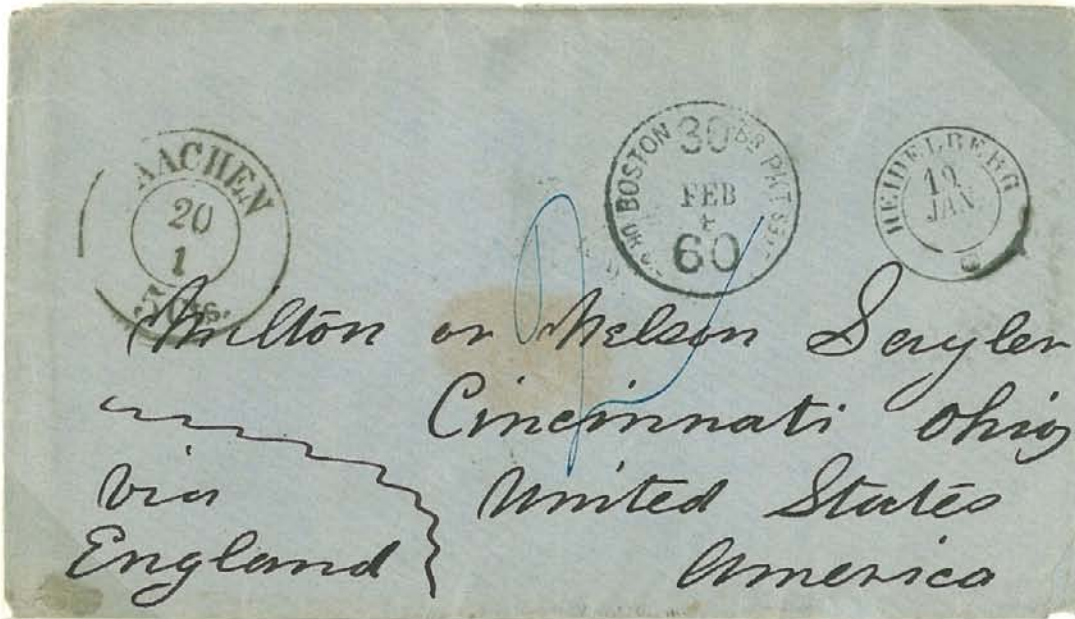 AACHEN
20
1
BOSTON
30
PKT
FEB
60
HEIDELBERG
19
JAN
Milton or Nelson Sayler
Cincinnati Ohio
via United States
England America